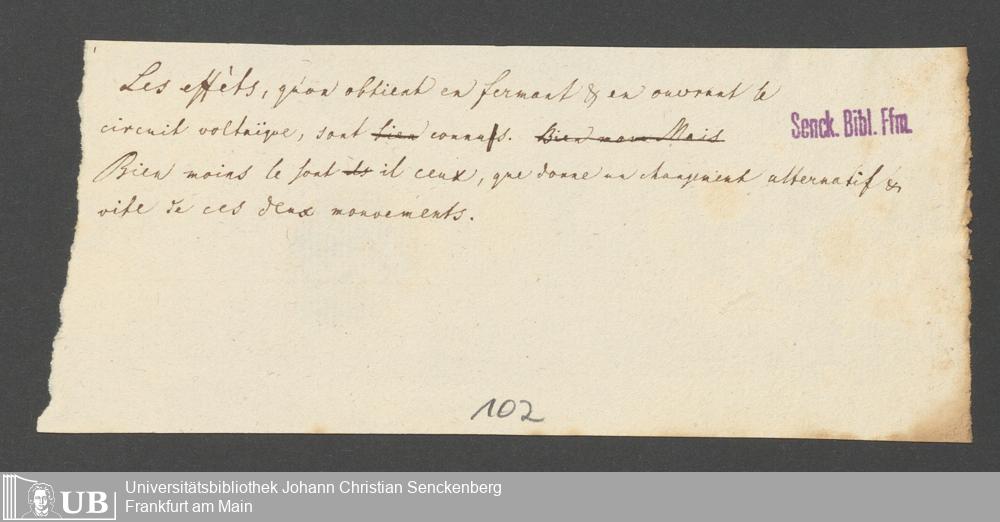 Les effèts, qu'on obtient en fermant & en ouvrant le
Senck. Bibl. Ffm.
circuit voltaïque, sont bien connus. Bien mo Mais
Bien moins le sont ils il ceux, que donne un changement alternatif &
vite de ces deux mouvements.
102
UB
Universitätsbibliothek Johann Christian Senckenberg
Frankfurt am Main